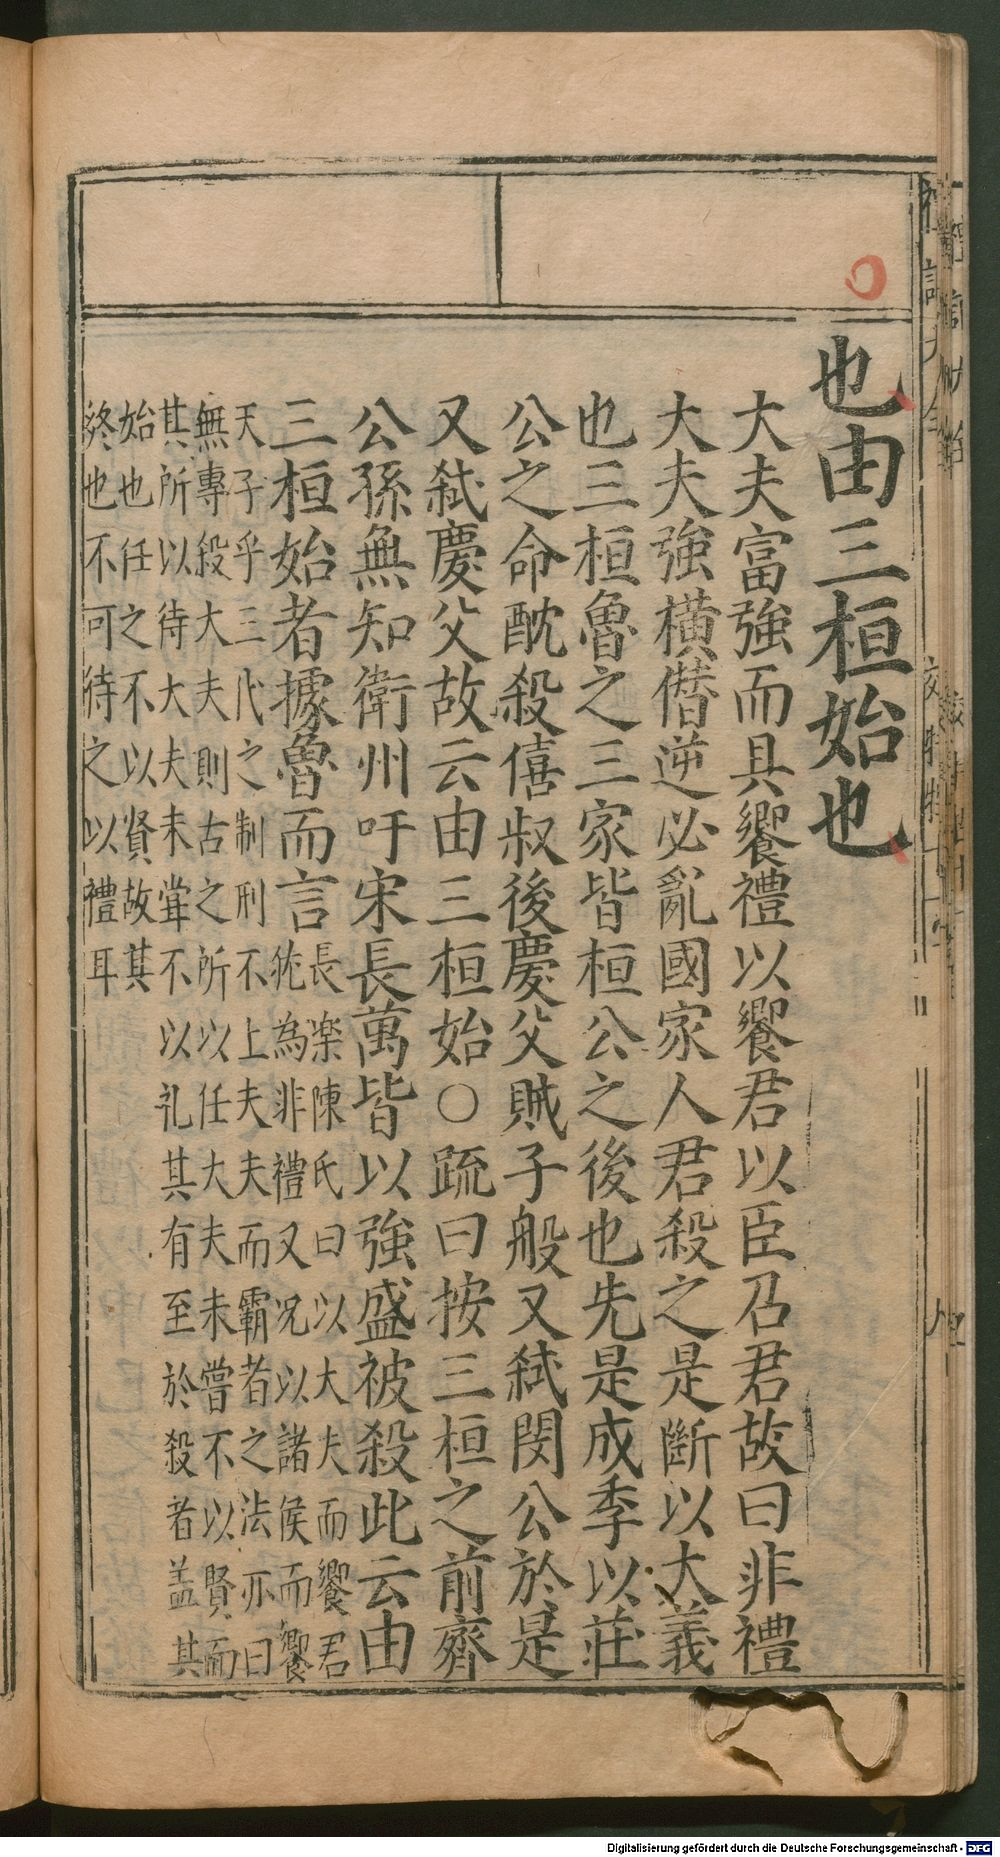 也由三桓始也
大夫富強而具饗禮以饗君以臣召君故曰非禮
大夫強橫僣逆必亂國家人君殺之是斷以大義
也三桓魯之三家皆桓公之後也先是成季以莊
公之命酖殺僖叔後慶父賊子般又弒閔公於是
又弒慶父故云由三桓始○疏曰按三桓之前齊
公孫無知衛州吁宋長萬皆以強盛被殺此云由
三桓始者據魯而言
長楽陳氏曰以大夫而饗君
犹為非禮又况以諸侯而饗
天子乎三代之制刑不上夫夫而霸者之法亦曰
無專殺大夫則古之所以任大夫未嘗不以賢而
其所以待大夫未甞不以礼其有至於殺者盖其
始也任之不以賢故其
終也不可待之以禮耳
Digitalisierung gefördert durch die Deutsche Forschungsgemeinschaft - DFG